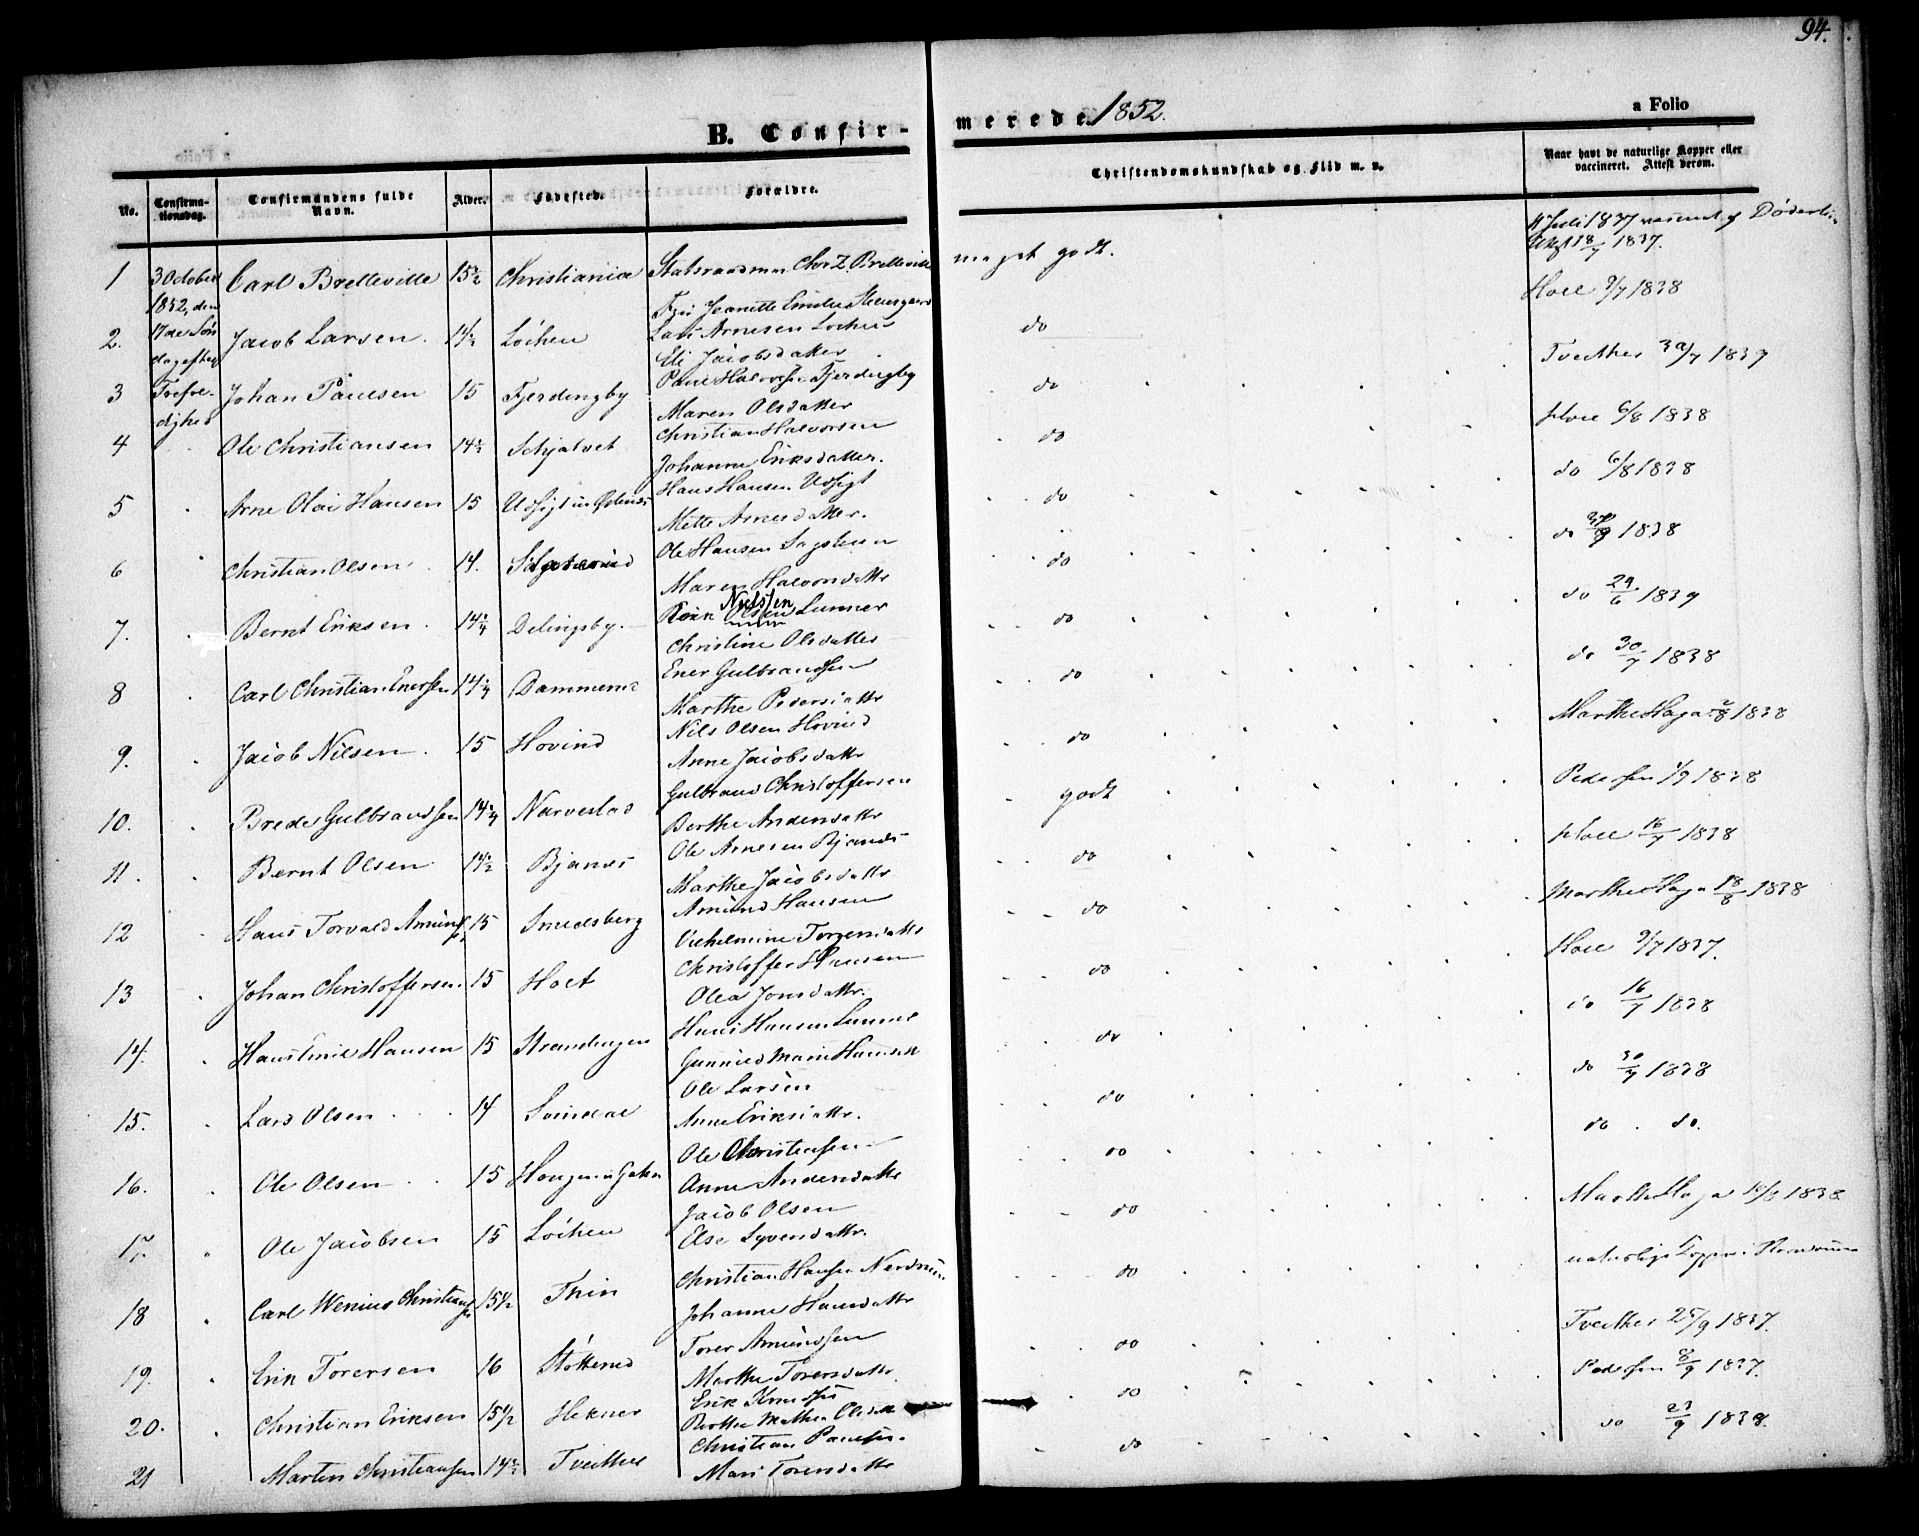 94.
B. Confirmerede 1852.
a Folio
No.
Confirmationsdag.
Confirmandens fulde Navn.
Alder.
Fødested.
Forældre.
Christendomskundskab og Flid m. v.
Naar havt de naturlige Kopper eller vaccineret. Attest derom.
3 October 1852, den 17de Søndag efter Trefoldighed
1 Carl Bretteville 15½ Christiania Statsraad Chr Z Bretteville
Jeanette Emilie
meget godt.
4 Juli 1837
18/7 1837.
2. Jacob Larsen. 14½ Løchen Lars Arnesen Lochen
Eli Jacobsdatter
do Hoel 9/7 1838
3 Johan Paulsen 15 Fjerdingby Paul Halvorsen Fjerdingby
Maren Olsdatter
do Tveither 30/7 1839
4 Ole Christiansen 14½ Christian Halvorsen
Johanne Eriksdatter.
do Hoel 6/8 1838
5 Arne Olai Hansen 15 Hans Hansen Udsigt
Mette Arnesdatter.
do do 6/8 1838
6 Christian Olsen 14. Ole Hansen
Maren Halvorsdattr
do do 1838
7. Bernt Eriksen. 14¼ Delingsby. Erik Olsen Nielsen Lunner
Christine Olsdatter
do do 29/6 1839
8 Carl Christian Enersen 14¼ Dammen Ener Gulbrandsen
Marthe Pedersdattr
do do 30/7 1838
9. Jacob Nilsen. 15 Hovind Nils Olsen Hovind
Anne Jacobsdattr
do Marthe Haga 1838
10. Brede Gulbrandsen 14¼ Narvestad Gulbrand Christoffersen
Berthe Andersdattr
godt Pedersen 1/9 1838
11. Bernt Olsen 14½ Bjanes Ole Arnesen Bjanes
Marthe Jacobsdattr
do Hoel 16/7 1838
12 Hans Torvald Amundsen 15 Smedsberg Amund Hansen
Vilhelmine
do Marthe Haga 18/8 1838
13 Johan Christoffersen. 15 Christoffer Hansen
Olea Jonsdattr.
do Hoel 9/7 1837.
14. Hans Emil Hansen 15 Strandengen Hans Hansen
Gunnild Marie
do do 16/7 1838
15. Lars Olsen 14 Svindal Ole Larsen
Anne Eriksdattr.
do do 30/7 1838
16. Ole Olsen 15 Ole Christiansen
Anne Andersdattr
do do do.
17. Ole Jacobsen 15 Løchen Jacob Olsen
Else Syversdattr.
do Marthe Haga 1838
18 Carl Wenius Christiansen 15½ Thin Christian Hansen
Johanne Hansdattr
do naturlige Kopper
19. Erik Torersen 16 Støtterud Torer Amundsen
Marthe Torersdattr.
do Tveither 25/9 1837.
20. Christian Eriksen 15½ Hekner Erik Knudsen
Berthe Mathea
do Pedersen 8/9 1837.
21 Marten Christiansen 14½ Tveither Christian Paulsen.
Mari Torersdattr
do do 23/9 1838.